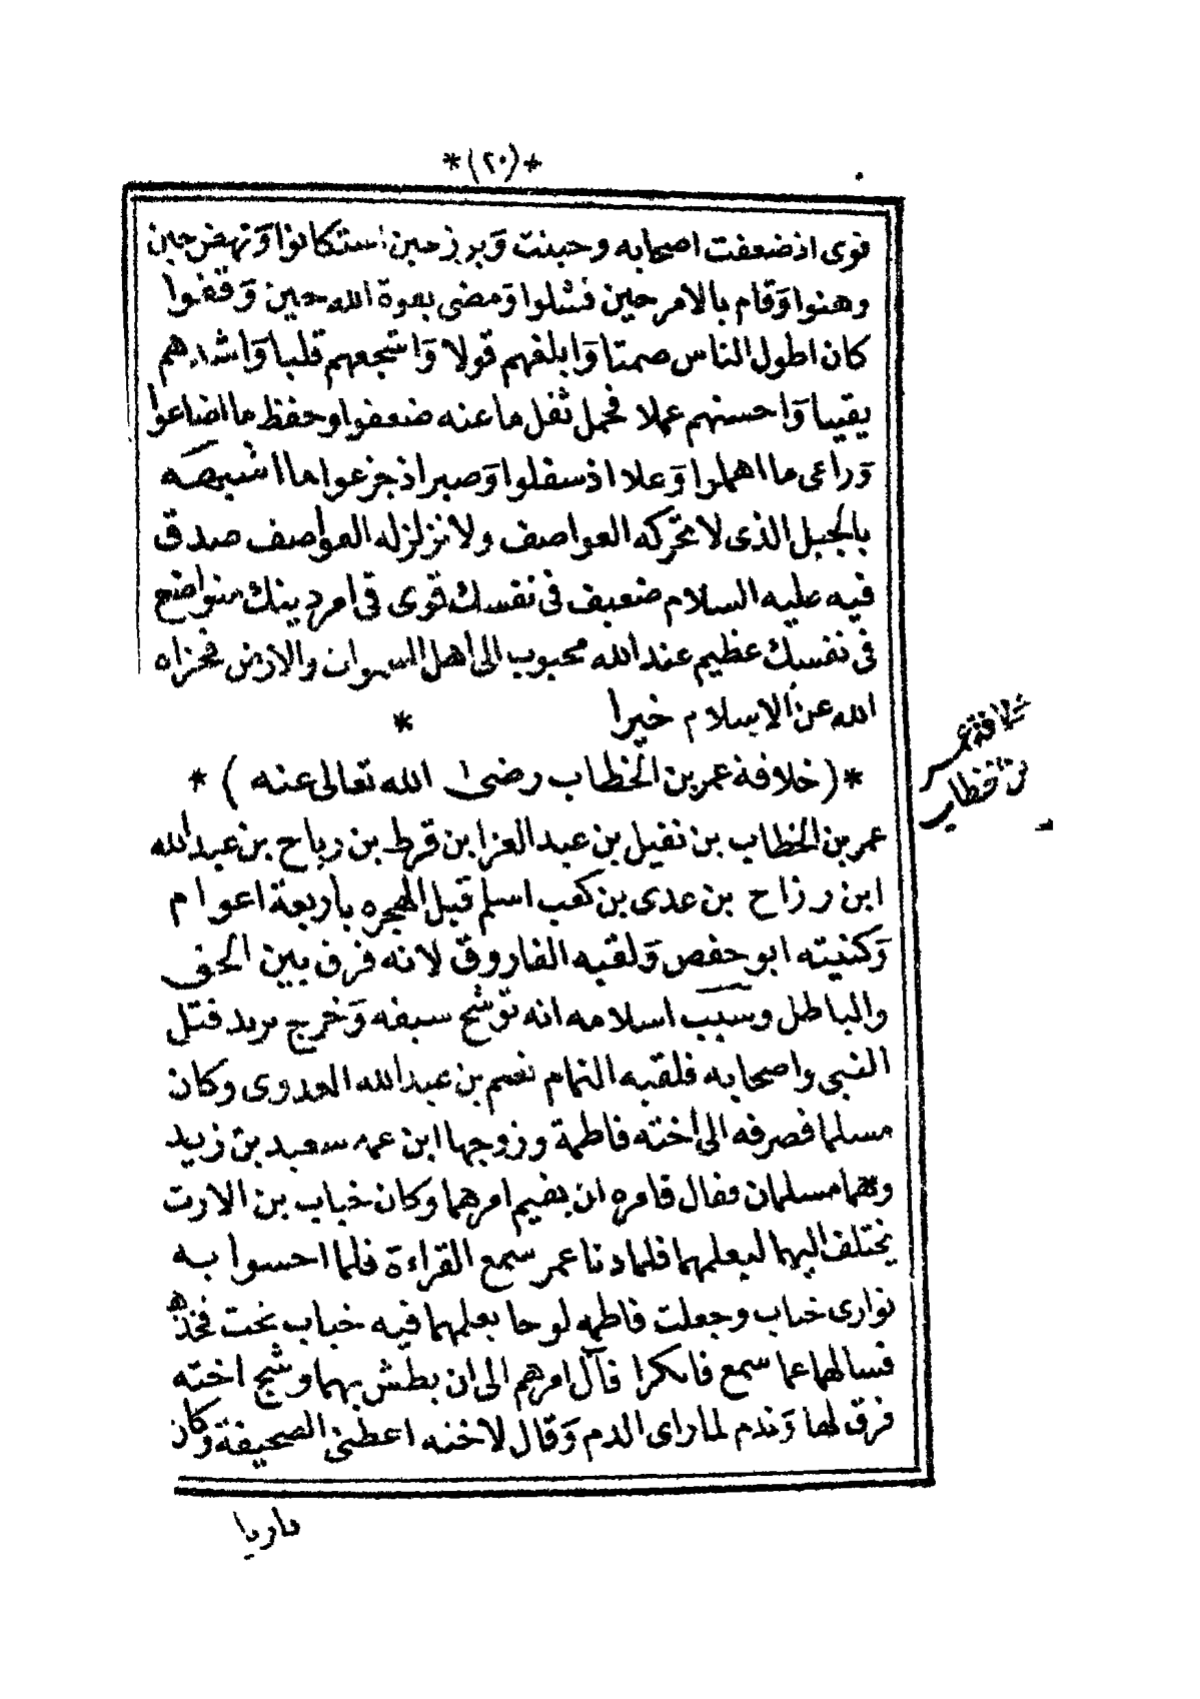 *(٢٠)*
قوى اذ ضعفت اصحابه وجبنت وَبرز حين استكانوا وَنهض حين
وهنوا وَقام بالامر حين فشلوا وَمضى بقوة الله حين وَقفوا
كان اطول الناس صمتا وَابلغهم قولا وَاشجعهم قلبا وَاشدهم
يقينا وَاحسنهم عملا فحمل ثقل ما عنه ضعفوا وحفظ ما اضاعوا
وَراعى ما اهملوا وَعلا اذ سفلوا وَصبر اذ جزعوا ما اشبهه
بالجبل الذى لا تحركه العواصف ولا تزلزله العواصف صدق
فيه عليه السلام ضعيف فى نفسك قوى فى امر دينك متواضع
فى نفسك عظيم عند الله محبوب الى اهل السموات والارض فجزاه
الله عن الاسلام خيرا *
*(خلافة عمر بن الخطاب رضى الله تعالى عنه)*
خلافة عمر
بن الخطاب
عمر بن الخطاب بن نفيل بن عبد العزا بن قرط بن رباح بن عبد الله
ابن رزاح بن عدى بن كعب اسلم قبل الهجره باربعة اعوام
وَكنيته ابو حفص وَلقبه الفاروق لانه فرق بين الحق
والباطل وسبب اسلامه انه توشح سيفه وَخرج يريد قتل
النبى واصحابه فلقيه النحام نعيم بن عبد الله العدوى وكان
مسلما فصرفه الى اخته فاطمة وزوجها ابن عمه سعيد بن زيد
وهما مسلمان فقال فامره ان يقيم امرهما وكان خباب بن الارت
يختلف اليهما ليعلمهما فلما دنا عمر سمع القراءة فلما احسوا به
توارى خباب وجعلت فاطمه لوحا يعلمهما فيه خباب تحت فخذها
فسالهما عما سمع فانكرا فآل امرهم الى ان بطش بهما وشج اخته
فرق لها وَندم لما راى الدم وَقال لاخته اعطنى الصحيفة وكان
قاريا